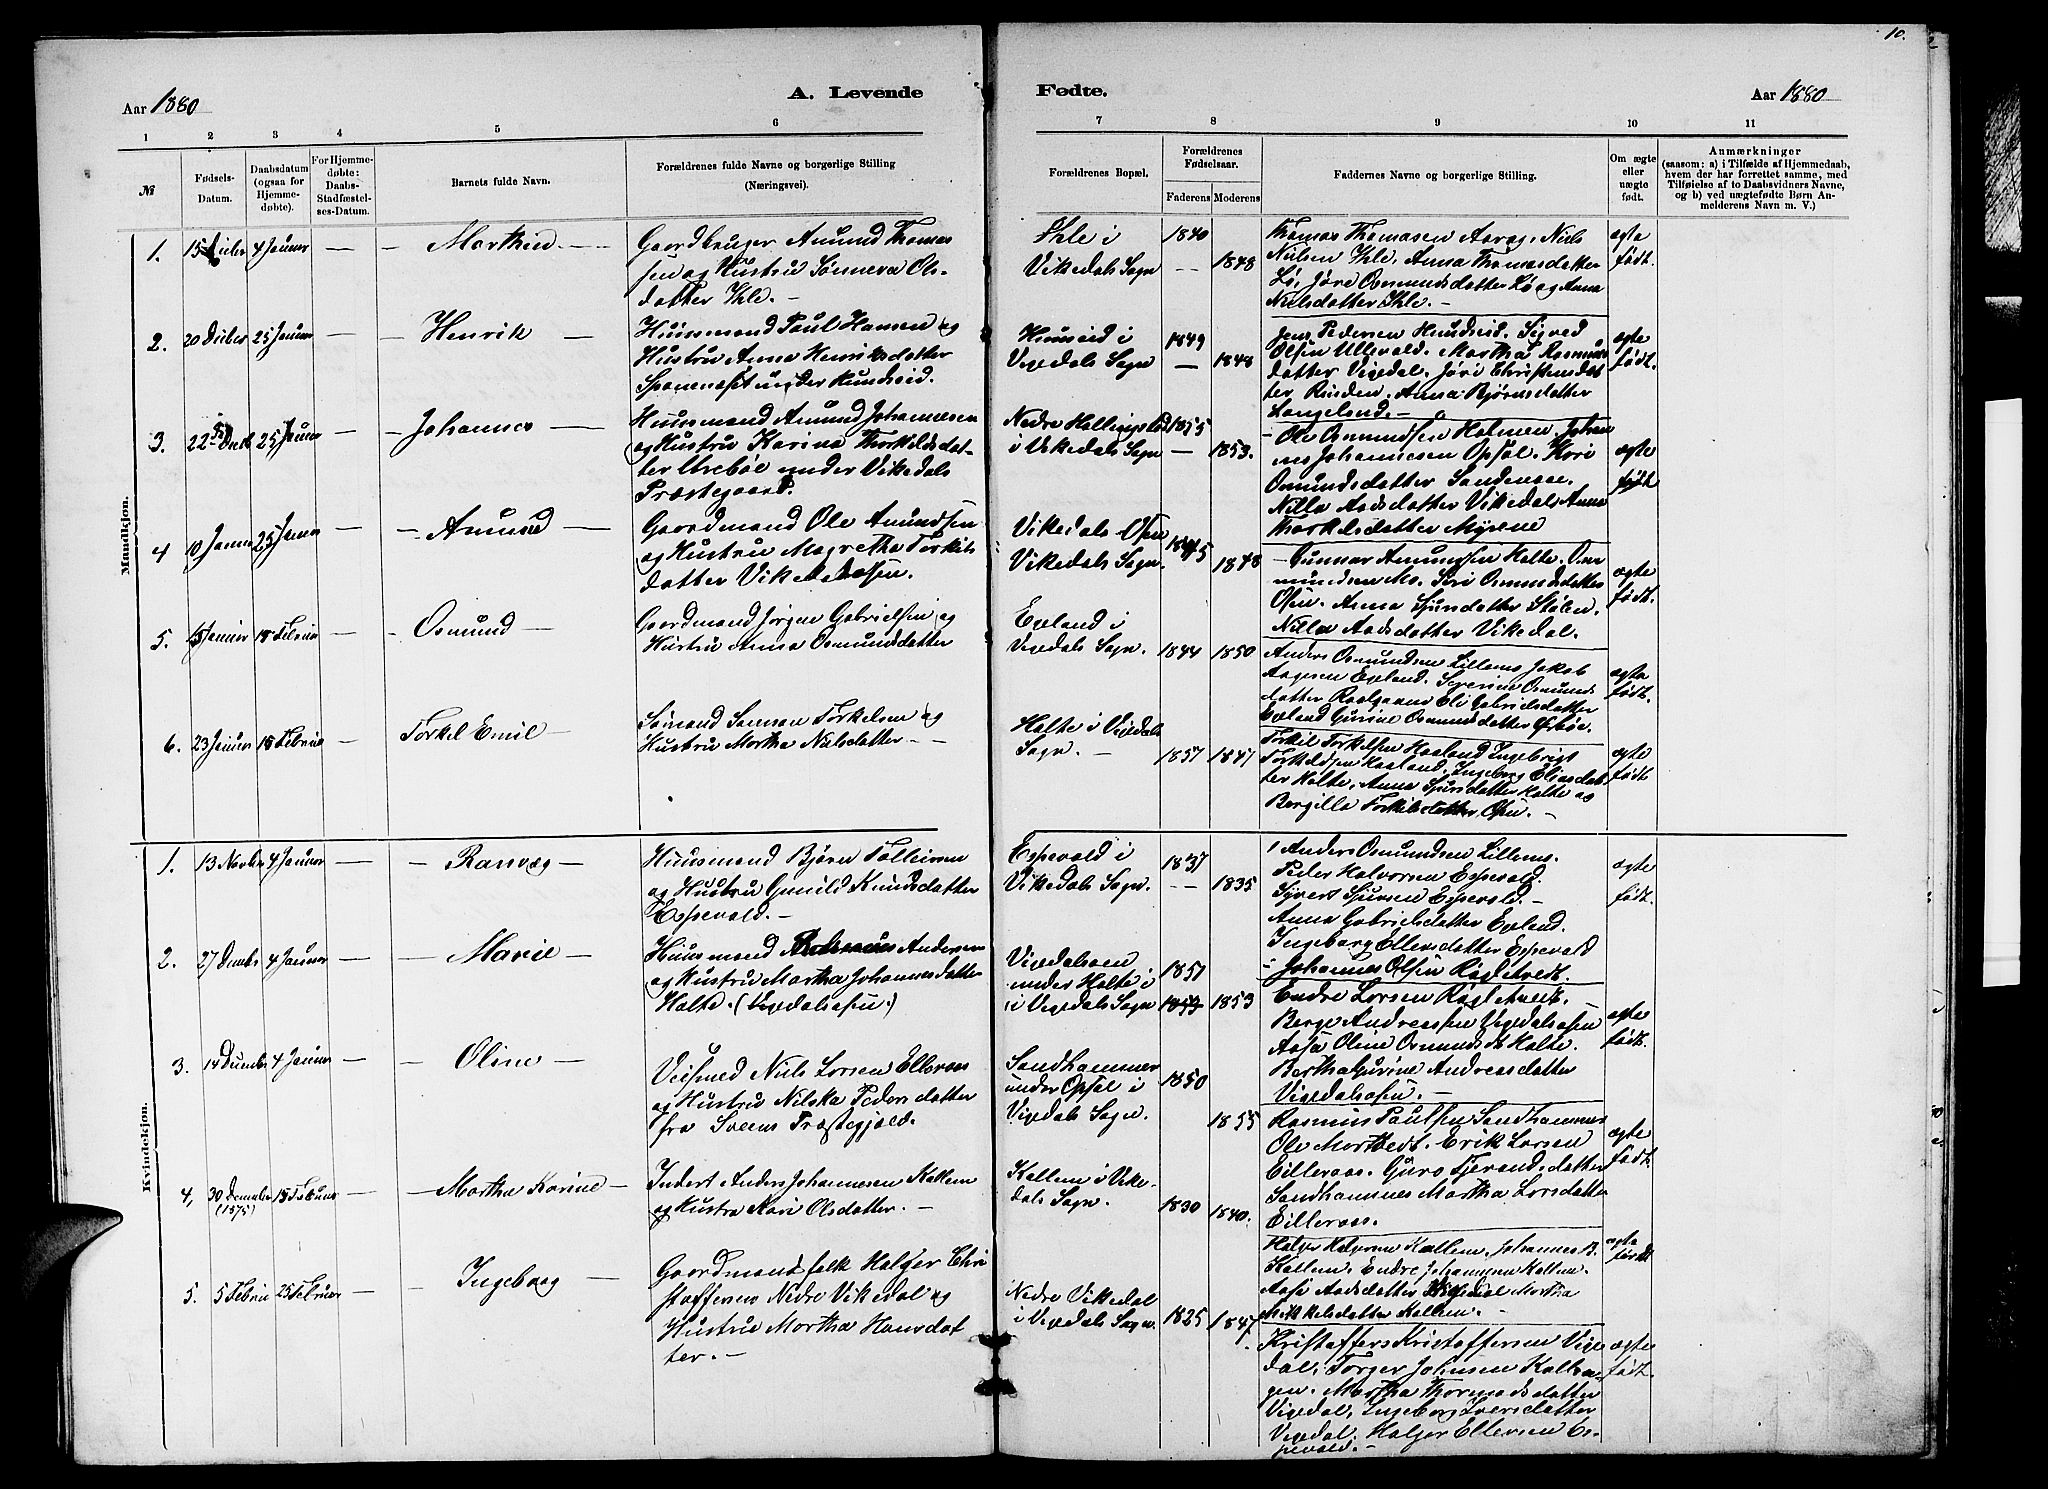 10.
Aar 1880
A. Levende
Fødte.
Aar 1880
1 2 3 4 5 6
7 8 9 10 11
№
Fødsels-
Datum.
Daabsdatum
(ogsaa for
Hjemme-
døbte).
For Hjemme-
døbte:
Daabs-
Stadfæstel-
ses-Datum.
Barnets fulde Navn.
Forældrenes fulde Navne og borgerlige Stilling
(Næringsvei).
Forældrenes Bopæl.
Forældrenes
Fødselsaar.
Faderens Moderens
Faddernes Navne og borgerlige Stilling.
Om ægte
eller
uægte
født.
Anmærkninger
(saasom: a) i Tilfælde af Hjemmedaab,
hvem der har forrettet samme, med
Tilføielse af to Daabsvidners Navne,
og b) ved uægtefødte Børn An-
melderens Navn m. V.)
Mandkjøn.
1.
4 Januar
Gaardbruger Amund Thomas
sen og Hustru Sønneva Ols-
datter Ihle. -
Ihle i
Vikedals Sogn
1840
1848
Thomas Thomasen Aarag. Niels
Nielsen Ihle. Anna Thomasdatter
Lø, Jøre Osmundsdatter Lø og Anna
Nielsdatter Ihle. -
ægte
født.
2.
20 Dcbr 25 Januar
Henrik
Huusmand Paul Hansen og
Hustru Anna Henriksdatter
under Hundseid.
i
Vigedals Sogn
1849
1848
Jens Pedersen Hundseid. Sigved
Olsen Ullevold. Martha Rasmus
datter Vigedal. Jøri Christensdat
ter Rinden. Anna Bjørnsdatter
Langeland. -
ægte
født.
3.
22 25 Januar
Johannes
Huusmand Amund Johannesen
og Hustru Karina Thorkildsdat-
ter Urebøe under Vikedals
Præstegaard.
Nedre
i Vikedals Sogn
1855
1853.
Ole Osmundsen Holmen. Johan
nes Johannesen Opsal. Kari
Osmundsdatter Sandenæs.
Nilla Aadsdatter Vikedal. Anna
Thorkilsdatter Myrene
ægte
født
4
10 Januar 25 Januar
Amund
Gaardmand Ole Amundsen
og Hustru Magretha Torkils
datter Vikedalsosen.
Vikedals Osen
Vikedals Sogn.
1845
1848
Gunnar Amundsen Halte. Os
mundsen Mo. Siri Osmundsdatter
Osen. Anna Sjursdatter Stølen.
Nilla Aadsdatter Vikedal.
ægte
født.
5.
15 Januar 15 Februar
Osmund
Gaardmand Jørgen Gabrielsen og
Hustru Anna Osmundsdatter
Egeland i
Vigedals Sogn.
1844 1850
Anders Osmundsen Lillenes Jakob
Aagesen Egeland. Severine Osmunds
datter Eli Gabrielsdatter
Egeland Gurine Osmundsdatter Ørbøe.
ægte
født.
6.
23 Januar 15 Februar
Torkel Emil
Sømand Samson Torkelsen og
Hustru Martha Nielsdatter -
Halte i Vigedals
Sogn. -
1857 1847
Torkil Torkelsen Haaland Ingebrigt
Torkeldsen Haaland. Ingeborg Eliasdat
ter Halte. Anna Sjursdatter Halte og
Bergilla Torkilsdatter Osen. -
ægte
født
Kvindekjøn.
1.
13 Novbr 4 Januar
Ranvæg
Huusmand Bjørn Tolleivsen
og Hustru Gunild Knudsdatter
Espevold. -
Espevold i
Vikedals Sogn.
1837
1835
Anders Osmundsen Lillenes.
Peder Halvorsen Espevold.
Sivert Sjursen Espevold. -
Anna Gabrielsdatter Egeland.
Ingeborg Ellersdatter Espevold
ægte
født.
2.
27 Decmbr 4 Januar
Marie
Huusmand Rasmus Andersen
og Hustru Martha Johannesdatter
Halte. (Vigedalsosen)
Vigedalsosen
under Halte i
i Vigedals Sogn
1851
1853 1853
Johannes Olsen Røgletvedt.
Endre Larsen Røgletvedt.
Berge Andreassen Vigedalsosen
Aasa Oline Osmundsdt Halte.
Bertha Gurine Andreasdatter
Vigedalsosen. -
ægte
født.
3.
14 Decmber 4 Januar
Oline
Veismed Niels Larsen Elleraas
og Hustru Nilska Pedersdatter
fra Sveens Præstegjeld.
Sandhammer
under Opsal i
Vigedals Sogn.
1850
1855
Rasmus Paulsen Sandhammer
Ole Mortvedt. Erik Larsen
Eilleraas. Guro Tjerandsdatter
Sandhamnes Martha Larsdatter
Eilleraas.
ægte
født.
4.
30 December 15 Februar
(1875)
Martha Karine
Inderst Anders Johannesen Kallem
og Hustru Kari Olsdatter. -
Kallem i Vike-
dals Sogn.
1830 1840.
Halvor Halvorsen Kallem. Johannes B.
Kallem. Endre Johannesen Kallem.
Aase Aadsdatter Vigedal Martha
Mikkelsdatter Kallem. -
ægte
født
5.
5 Februar 25 Februar
Ingeborg
Gaardmandsfolk Holger Chri
stoffersen Nedre Vikedal og
Hustru Martha Hansdat
ter. -
Nedre Vikedal
i Vigedals Sogn
1825 1847
Kristoffers Kristoffersen Vige
dal. Torger Johnsen Kalha-
gen. Martha Thormodsdatter
Vigedal. Ingeborg Iversdatter
Vigedal. Holger Ellersen Es-
pevold. -
ægte
født.